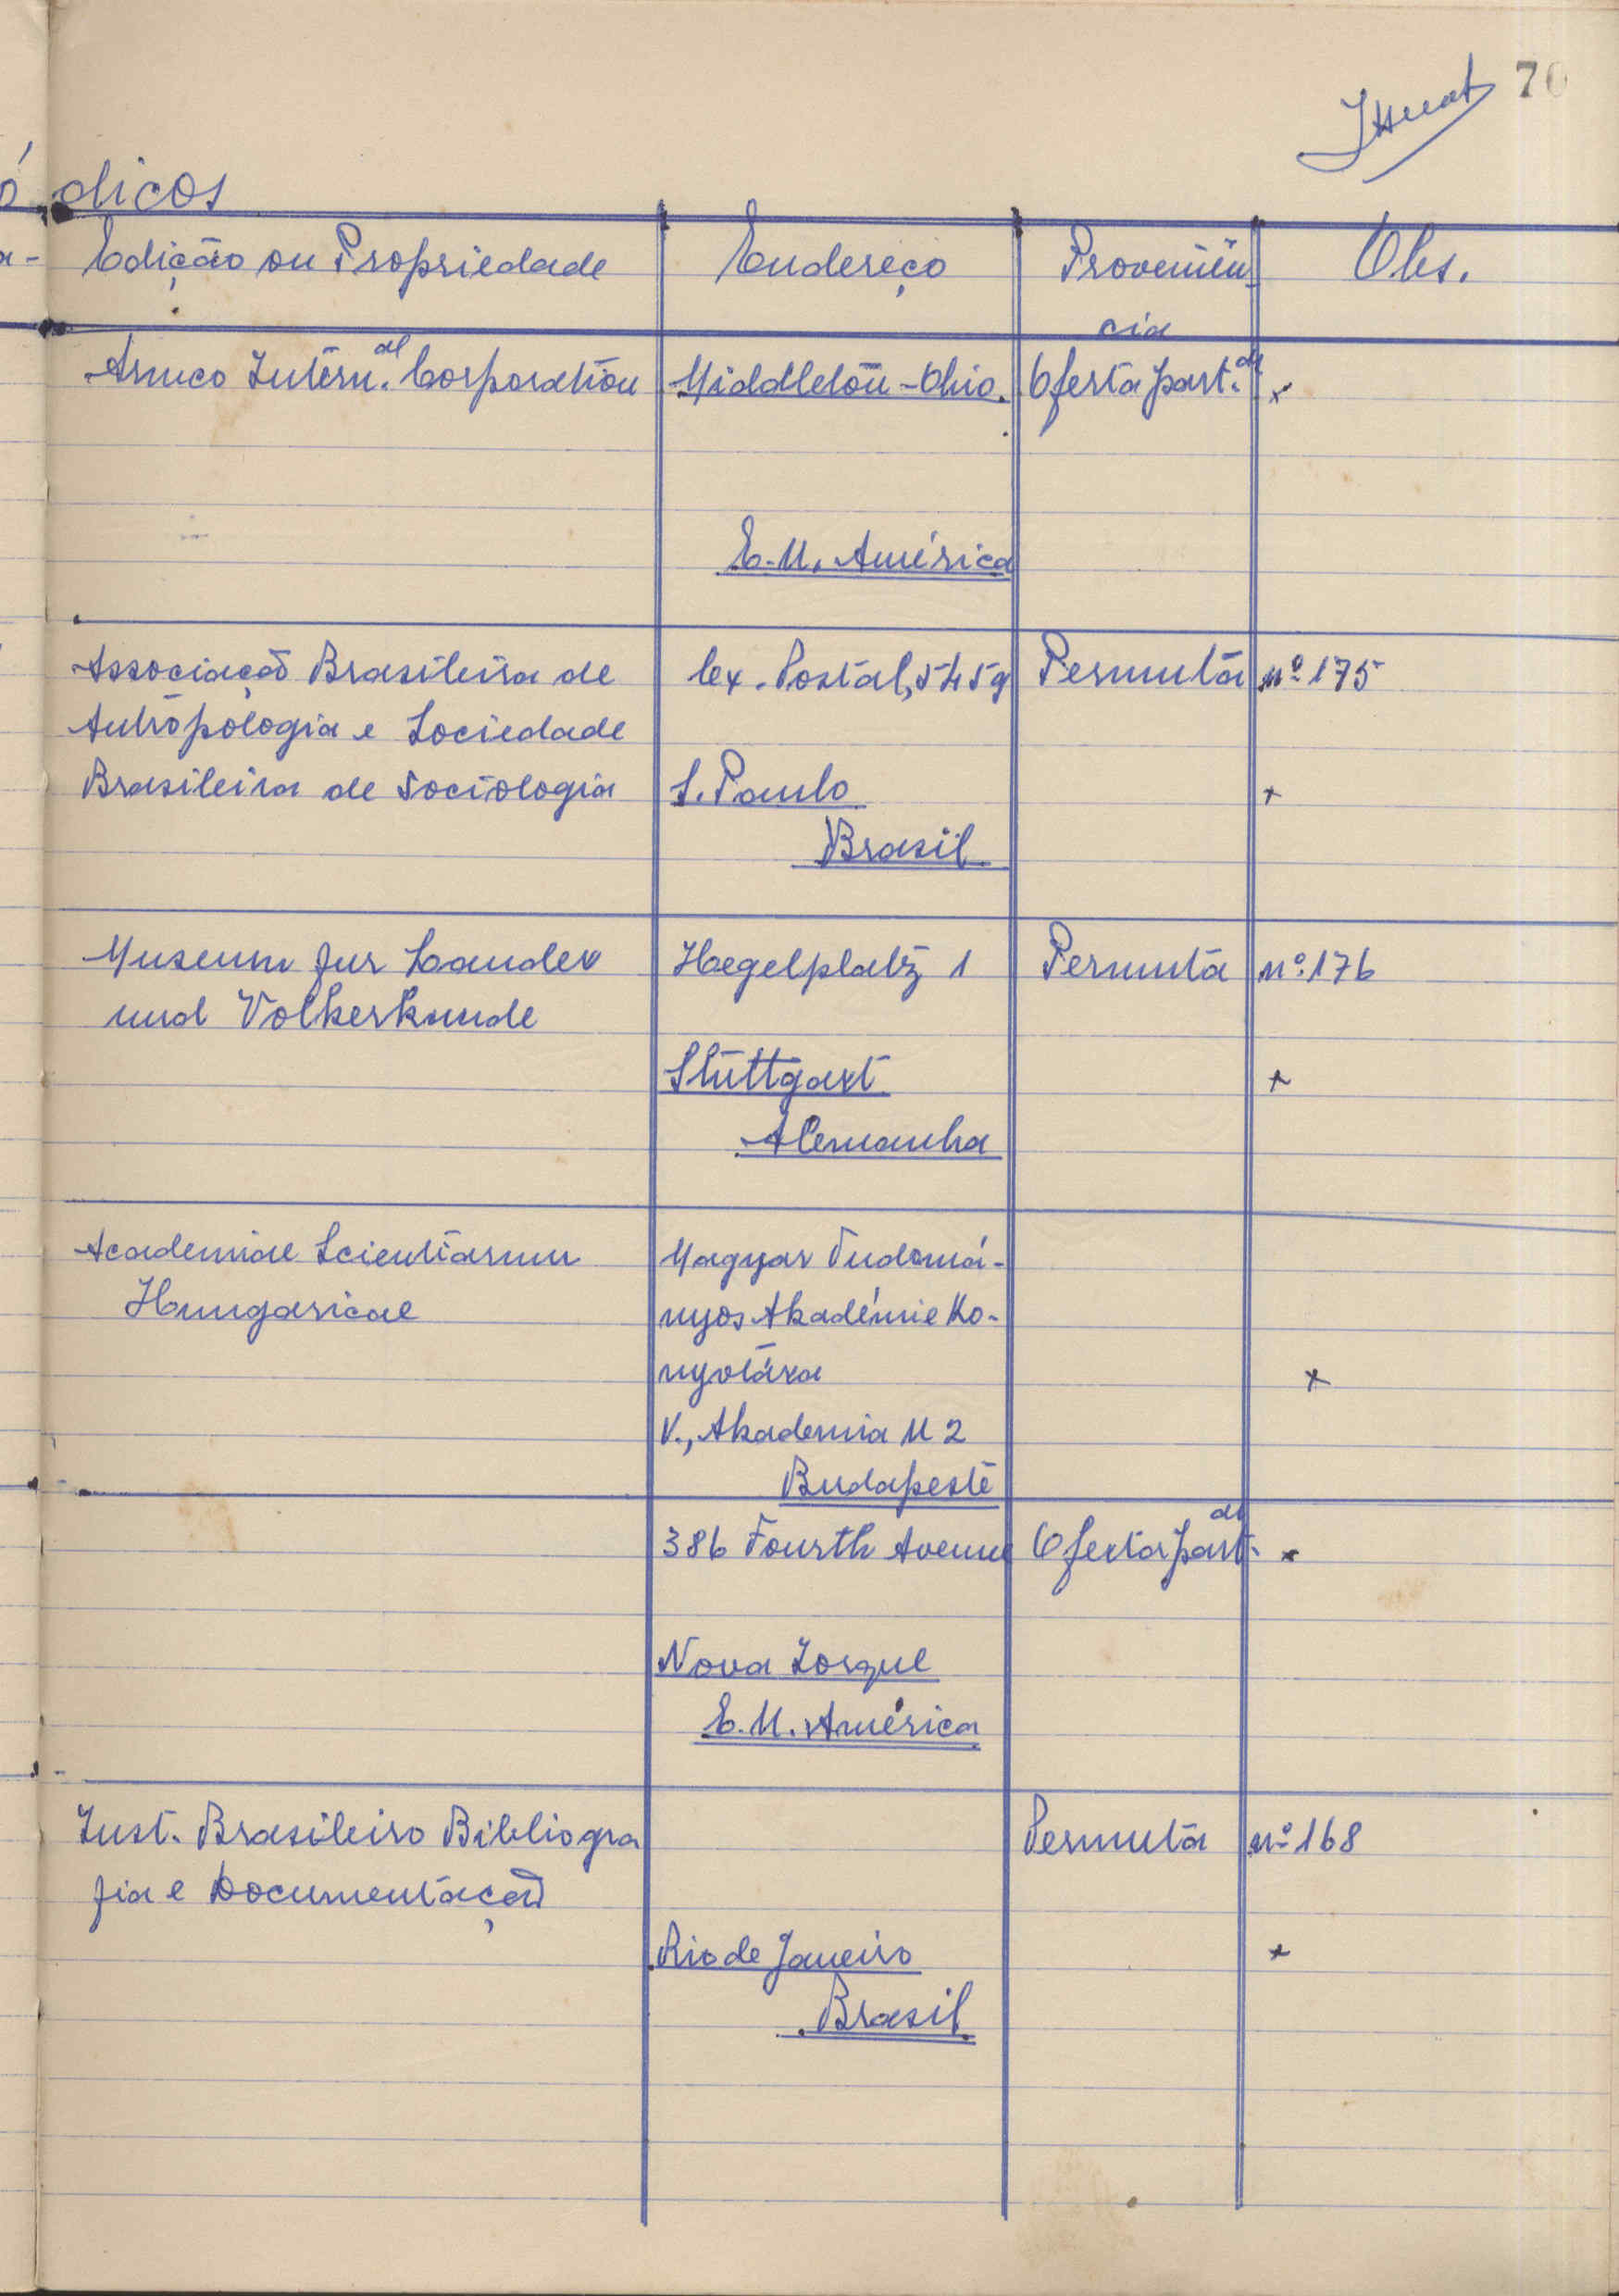 70
ó dicos
a- Edição ou Propriedade Endereço Proveniên
cia Obs.
Armco Intern.al Corporation Middletõn - Ohio. Oferta part.al x
E.U. América
Associação Brasileira de Cx. Postal, 5459 Permuta nº 175
Antropologia e Sociedade
Brasileira de Sociologia S. Paulo x
Brasil
Museum fur Lander Hegelplatz 1 Permuta nº 176
und Volkerkunde
Stuttgart x
Alemanha
Academiae Scientiarum Magyar Tudomá-
Hungaricae nyos Akadémie Ko-
nyvtára x
V., Akademia U 2
Budapeste
386 Fourth Avenue Oferta part.al x
Nova Iorque
E.U. América
Inst. Brasileiro Bibliogra Permuta nº 168
fia e Documentação
Rio de Janeiro x
Brasil